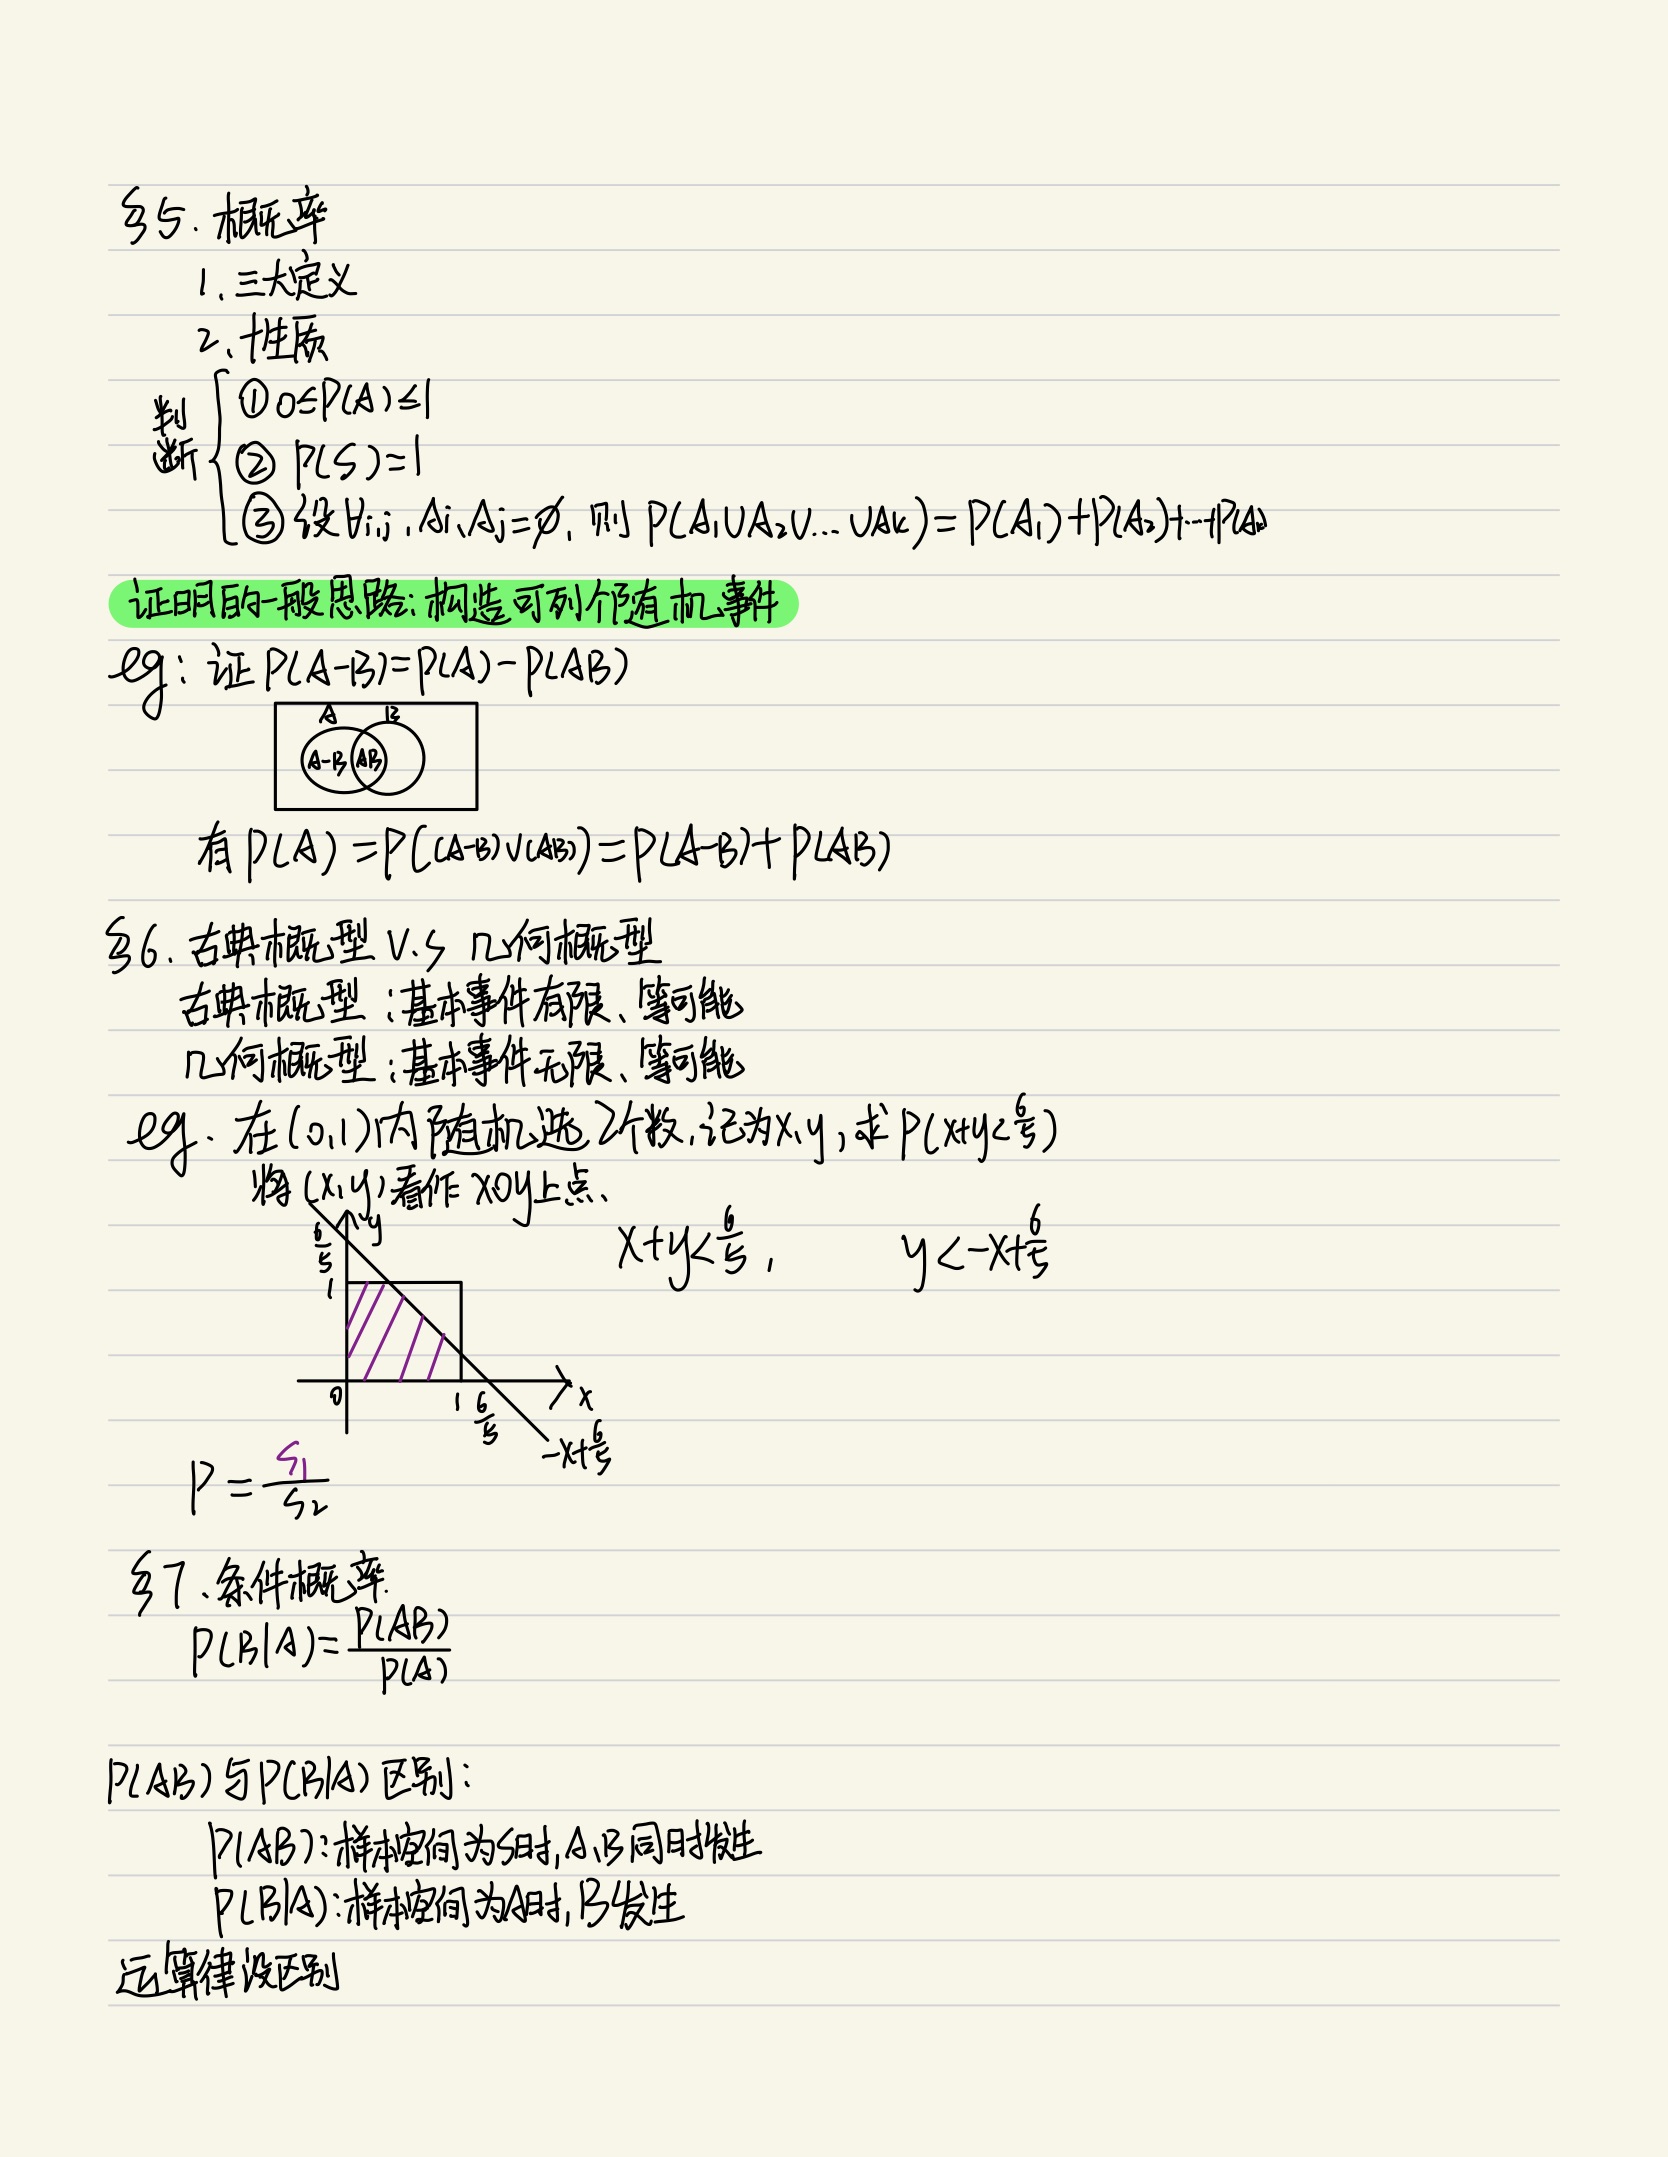 §5. 概率
1. 三大定义
2. 性质
判断
① 0≤P(A)≤1
② P(S)=1
③ 设∀i,j, Ai、Aj=∅, 则 P(A₁∪A₂∪...∪Ak)=P(A₁)+P(A₂)+...+P(Ak)
证明的一般思路:构造可列个随机事件
eg: 证 P(A-B)=P(A)-P(AB)
A B
A-B AB
有 P(A)=P((A-B)∪(AB))=P(A-B)+P(AB)
§6. 古典概型 V.S 几何概型
古典概型:基本事件有限、等可能
几何概型:基本事件无限、等可能
eg. 在(0,1)内随机选2个数,记为x,y,求P(x+y<6/5)
将(x,y)看作xoy上点、
x+y<6/5, y<-x+6/5
6/5 y
1
0 1 6/5 x
-x+6/5
P=S₁/S₂
§7、条件概率.
P(B|A)=P(AB)/P(A)
P(AB)与P(B|A)区别:
P(AB):样本空间为S时,A、B同时发生
P(B|A):样本空间为A时,B发生
运算律没区别